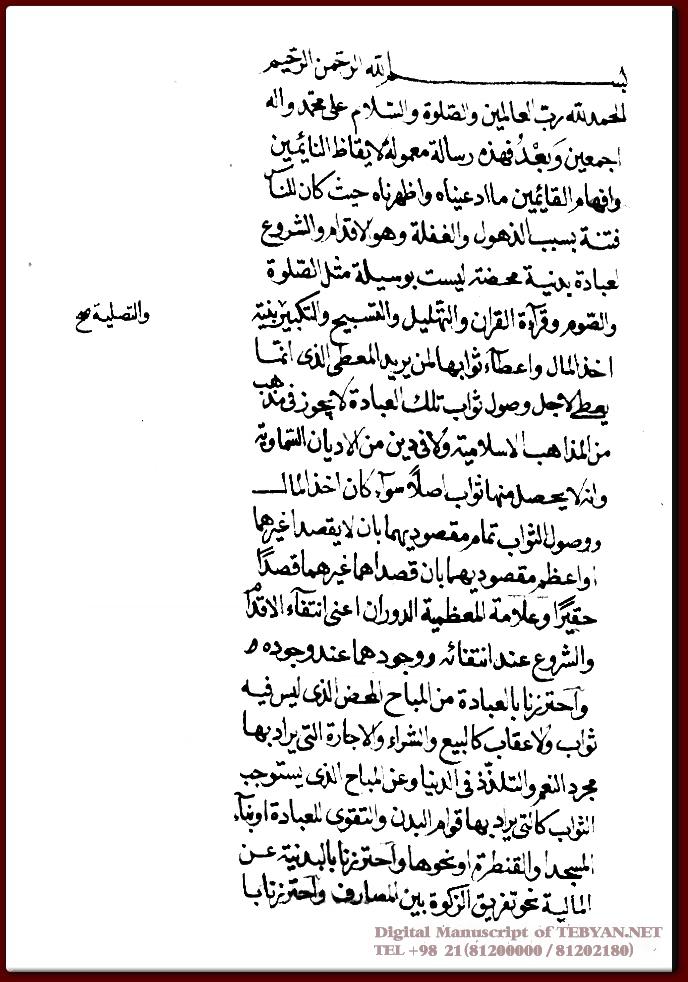 بسم الله الرحمن الرحيم
الحمد لله رب العالمين والصلوة والسلام على محمد واله
اجمعين وبعد فهذه رسالة معمولة لايقاظ النائمين
وافهام القائمين ما ادعيناه واظهرناه حيث كان للناس
فتنة بسبب الذهول والغفلة وهو الاقدام والشروع
لعبادة بدنية محضة ليست بوسيلة مثل الصلوة
والصوم وقرآءة القران والتهليل والتسبيح والتكبير بنية
والتصلية صح
اخذ المال واعطآء ثوابها لمن يريد المعطى الذى انما
يعطى لاجل وصول ثواب تلك العبادة لا يجوز فى مذهب
من المذاهب الاسلامية ولا فى دين من الاديان السماوية
وانه لا يحصل منها ثواب اصلا سوآء كان اخذ المال
ووصول الثواب تمام مقصوديهما بان لا يقصدا غيرهما
او اعظم مقصوديهما بان قصدا هما غيرهما قصدًا
حقيرًا وعلامة المعظمية الدوران اعنى انتفآء الاقدام
والشروع عند انتفائه ووجودهما عند وجوده
واحترزنا بالعبادة من المباح المحض الذى ليس فيه
ثواب ولا عقاب كالبيع والشراء والاجارة التى يراد بها
مجرد النعم والتلذذ فى الدنيا وعن المباح الذى يستوجب
الثواب كالتى يراد بها قوام البدن والتقوى للعبادة او بنآء
المسجد او القنطرة او نحوها واحترزنا بالبدنية عن
المالية نحو تفريق الزكوة بين المصارف واحترزنا با
Digital Manuscript of TEBYAN.NET
TEL +98 21(81200000 / 81202180)